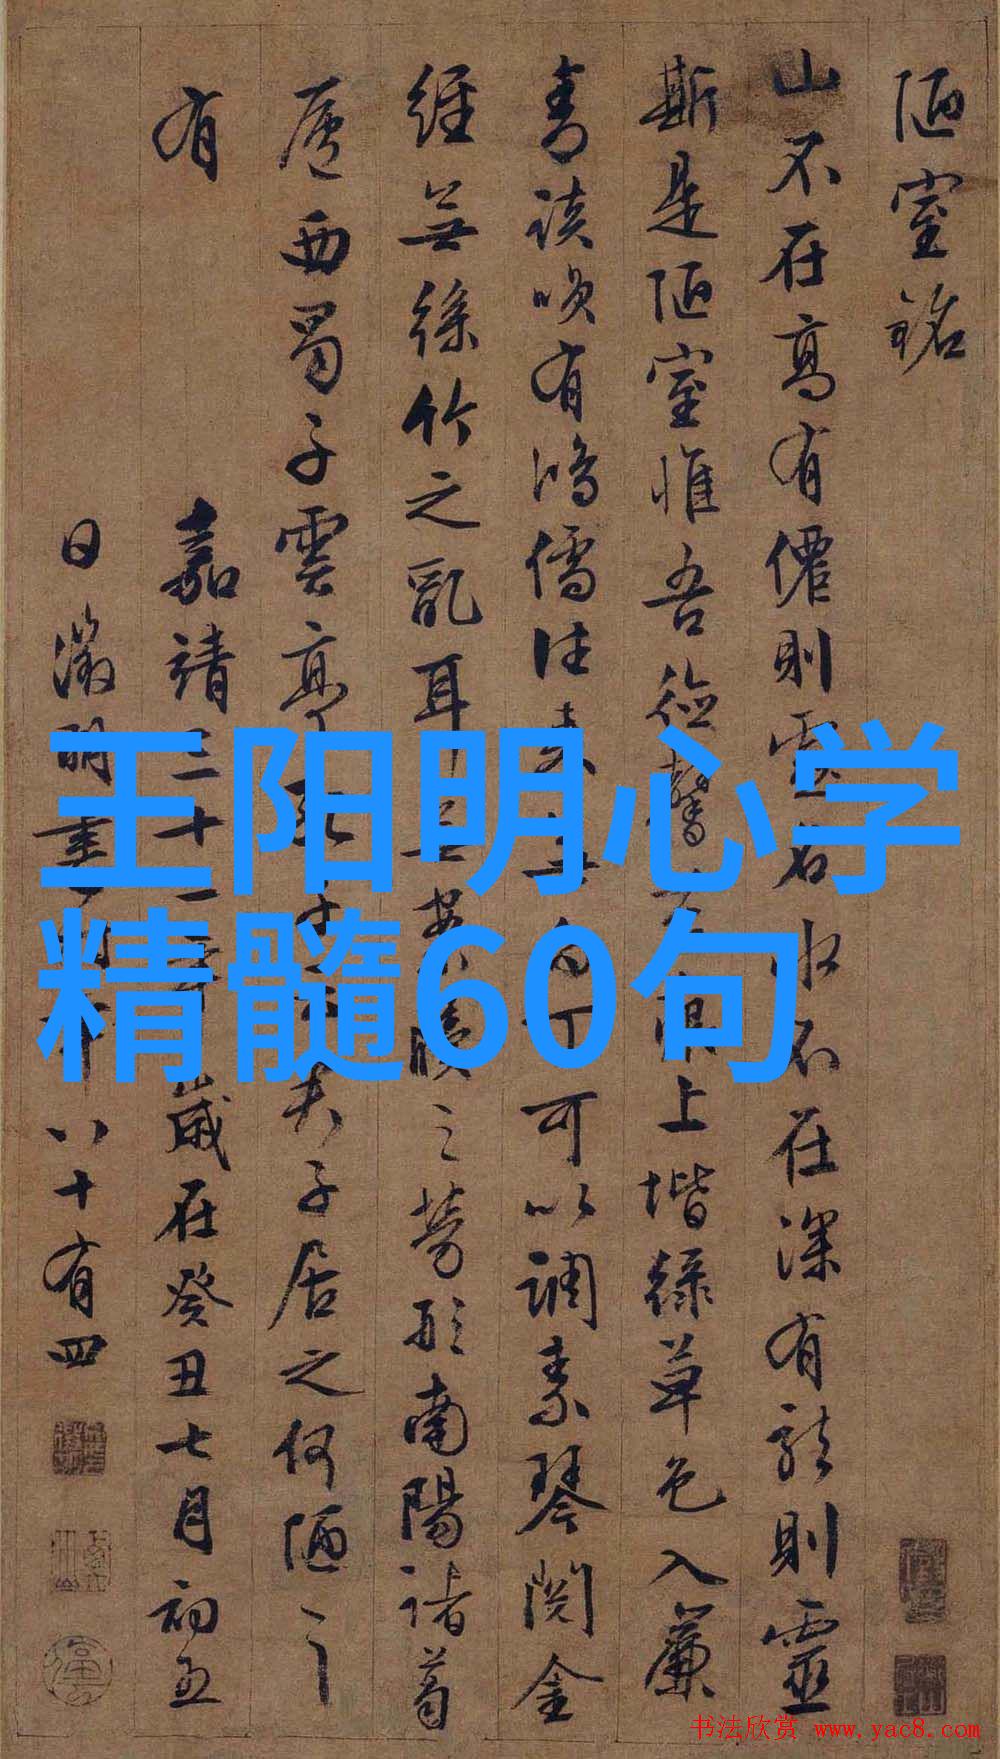 陋室銘
山不在高有僊則名水不在深有龍則靈
斯是陋室惟吾德馨苔痕上堦綠草色入簾
青談咲有鴻儒往来無白丁可以調素琴閱金
經無絲竹之亂耳無案牘之勞形南陽諸葛
廬西蜀子雲亭孔子云夫子居之何陋之
有
嘉靖三十二年歲在癸丑七月初五
日徵明重八十有四
王阳明心学
精髓60句
书法欣赏 www.yac8.com